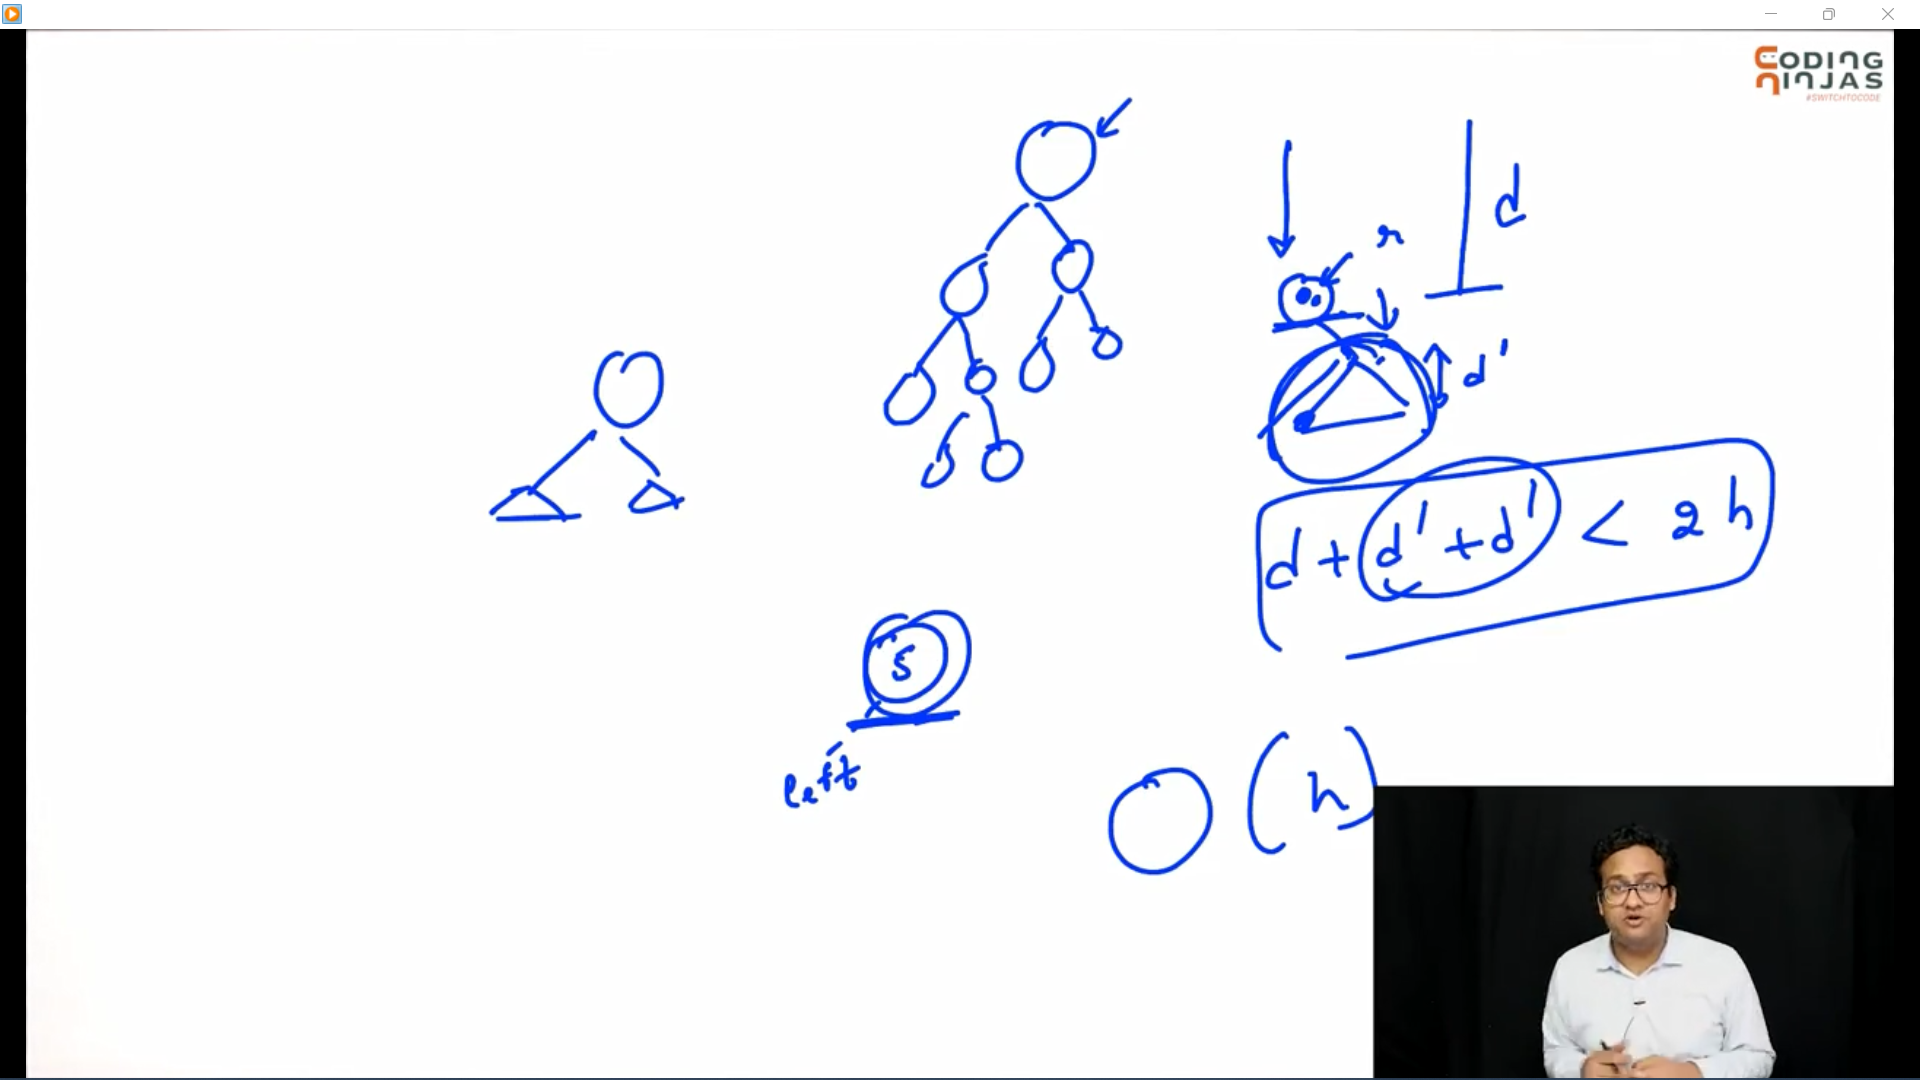 CODING
NINJAS
#SWITCHTOCODE
d
r
d'
d + d' + d' < 2h
5
left
O(h)